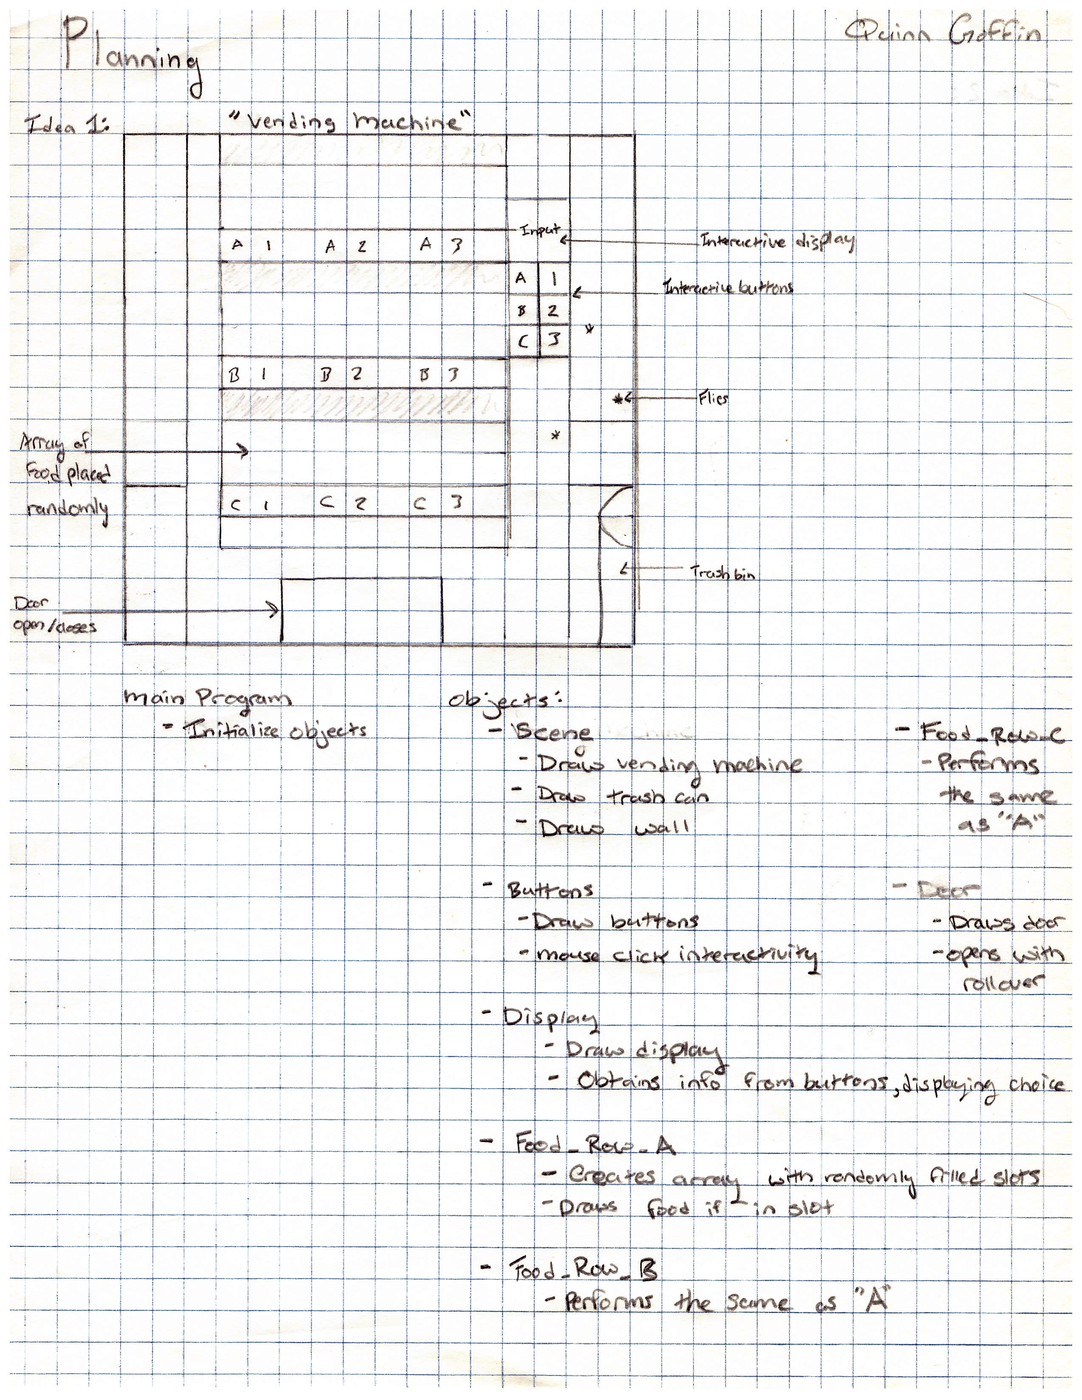 Planning
Quinn Goffin
Idea 1:
"Vending Machine"
Input
Interactive display
A 1 A 2 A 3
A 1
Interactive buttons
B 2
C 3
*
B 1 B 2 B 3
* Flies
*
Array of
Food placed
randomly
C 1 C 2 C 3
Trash bin
Door
open/closes
Main Program
- Initialize objects
Objects:
- Scene
- Draw vending machine
- Draw trash can
- Draw wall
- Buttons
- Draw buttons
- mouse click interactivity
- Display
- Draw display
- Obtains info from buttons, displaying choice
- Food_Row_A
- Creates array with randomly filled slots
- Draws food if in slot
- Food_Row_B
- Performs the same as "A"
- Food_Row_C
- Performs
the same
as "A"
- Door
- Draws door
- opens with
rollover